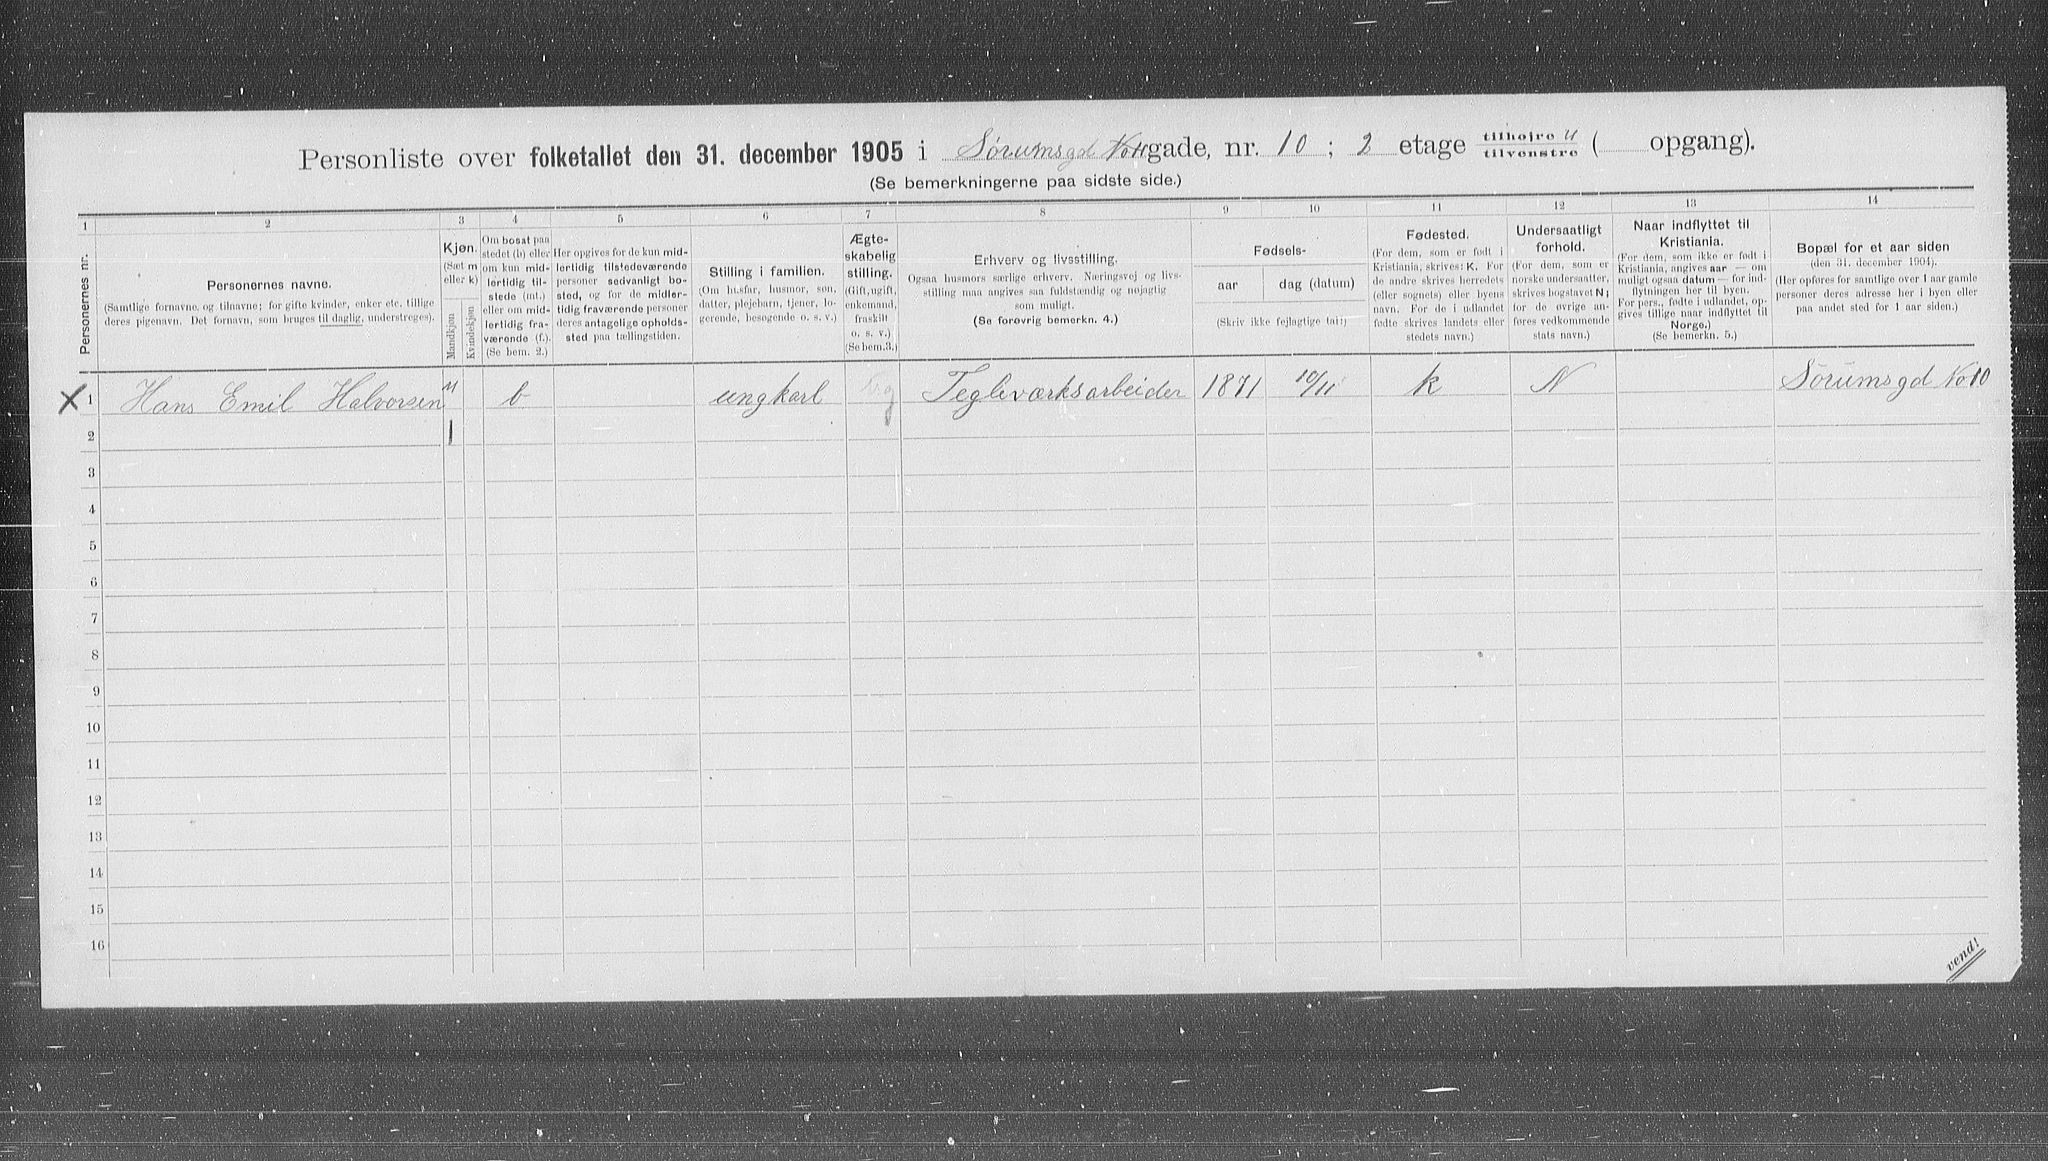 Personliste over folketallet den 31. december 1905 i Sørumsgd gade, nr. 10 ; 2 etage tilhøire / tilvenstre ( opgang).
(Se bemerkningerne paa sidste side.)
1 2 3 4 5 6 7 8 9 10 11 12 13 14
Personernes nr.
Personernes navne.
(Samtlige fornavne og tilnavne; for gifte kvinder, enker etc. tillige
deres pigenavn. Det fornavn, som bruges til daglig, understreges).
Kjøn.
(Sæt m
eller k)
Mandkjøn
Kvindekjøn
Om bosat paa
stedet (b) eller
om kun mid-
lertidig til-
stede (mt.)
eller om mid-
lertidig fra-
værende (f.).
(Se bem. 2.)
Her opgives for de kun mid-
lertidig tilstedeværende
personer sedvanligt bo-
sted, og for de midler-
tidig fraværende personer
deres antagelige opholds-
sted paa tællingstiden.
Stilling i familien.
(Om husfar, husmor, søn,
datter, plejebarn, tjener, lo-
gerende, besøgende o. s. v.)
Ægte-
skabelig
stilling.
(Gift, ugift,
enkemand,
fraskilt
o. s. v.)
(Se bem. 3.)
Erhverv og livsstilling.
Ogsaa husmors særlige erhverv. Næringsvej og livs-
stilling maa angives saa fuldstændig og nøjagtig
som muligt.
(Se forøvrig bemerkn. 4.)
Fødsels-
aar dag (datum)
(Skriv ikke fejlagtige tal!)
Fødested.
(For dem, som er født i
Kristiania, skrives: K. For
de andre skrives herredets
(eller sognets) eller byens
navn. For de i udlandet
fødte skrives landets eller
stedets navn.)
Undersaatligt
forhold.
(For dem, som er
norske undersaatter,
skrives bogstavet N;
for de øvrige an-
føres vedkommende
stats navn.)
Naar indflyttet til
Kristiania.
(For dem, som ikke er født i
Kristiania, angives aar — om
muligt ogsaa datum — for ind-
flytningen her til byen.
For pers., fødte i udlandet, op-
gives tillige naar indflyttet til
Norge.)
(Se bemerkn. 5.)
Bopæl for et aar siden
(den 31. december 1904).
(Her opføres for samtlige over 1 aar gamle
personer deres adresse her i byen eller
paa andet sted for 1 aar siden.)
X 1 Hans Emil Halvorsen M b ungkarl g Tegleværksarbeider 1871 10/11 K N Sørumsgd No 10
2 1
3
4
5
6
7
8
9
10
11
12
13
14
15
16
vend!